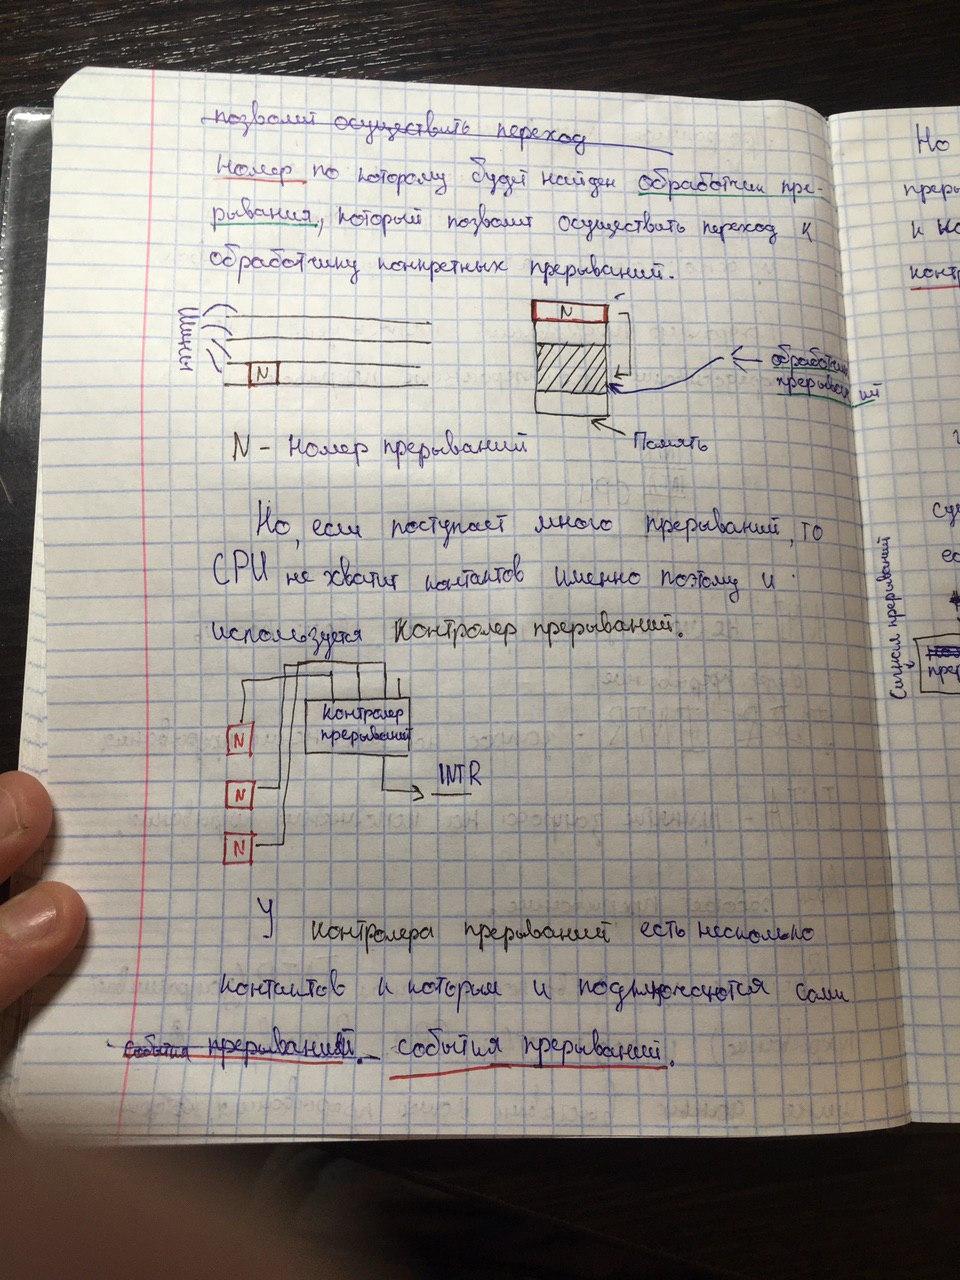 позволит осуществить переход
Номер по которому будет найден обработчик пре-
рывания, который позволит осуществить переход к
обработчику конкретных прерываний.
Шины
N
N
обработчик
прерываний
Память
N - Номер прерываний
Но, если поступает много прерываний, то
CPU не хватит контактов именно поэтому и
используется Контролер прерываний.
Контролер
прерываний
N
N
N
INTR
У контролера прерываний есть несколько
контактов к которым и подключаются сами
события прерываний. события прерываний.
Но
преры
и ко
контр
Сигнал прерываний
прер